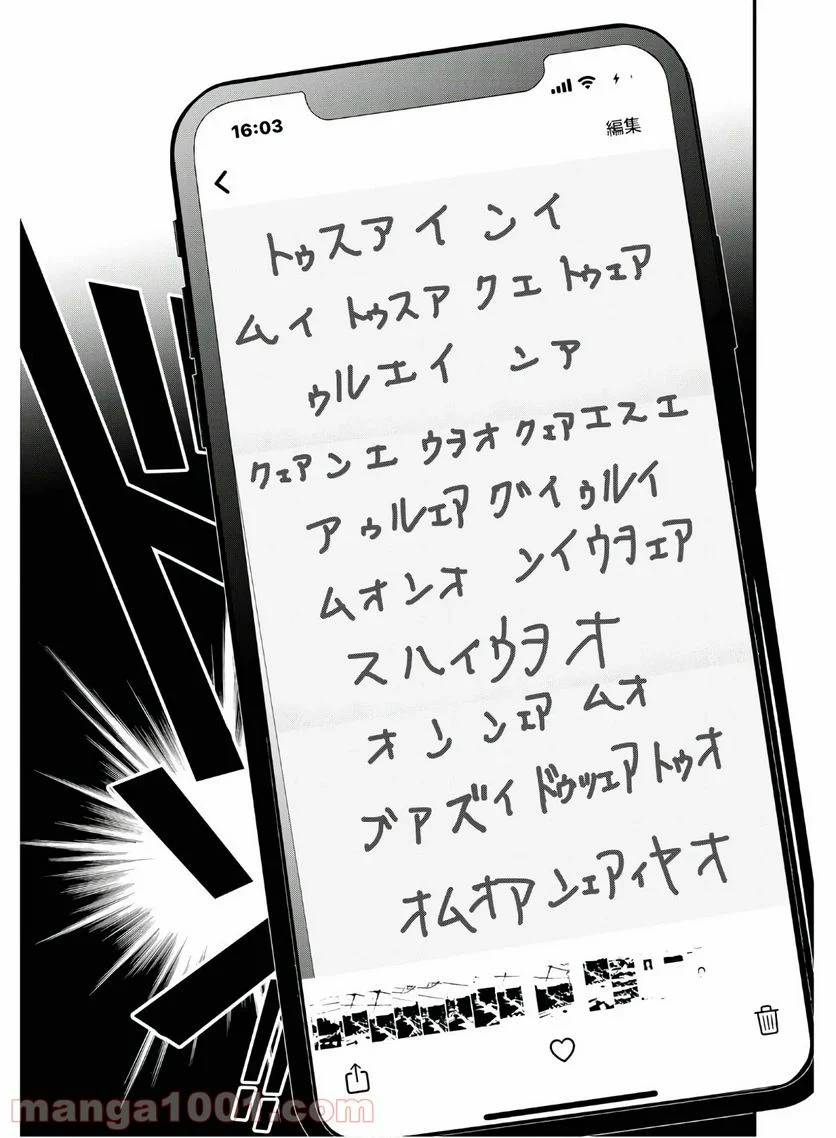 16:03
編集
トゥスアイ ンイ
ムイ トゥスア クエ トゥェア
ゥルエイ ンア
クェアンエ ウヲオ クェアエスエ
アゥルェア グイゥルイ
ムオンオ ンイウヲェア
スハイウヲオ
オン ンェア ムオ
ブアズイ ドゥッェア トゥオ
オムオア ンェアィヤオ
manga1001.com